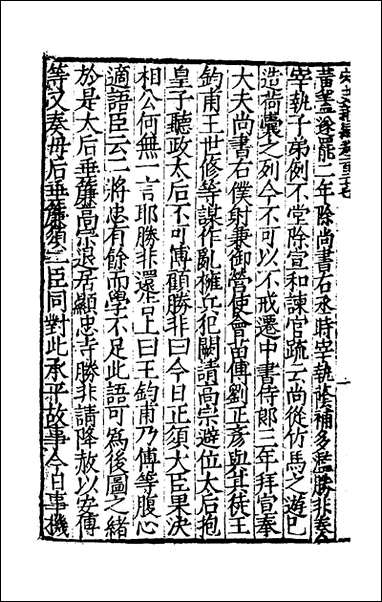 宋史新編卷一百二十七
黃蓋遂罷二年除尚書右丞時宰執蔭補多濫勝非奏
宰執子弟例不堂除宣和諫官疏云尚從竹馬之遊巳
造荷囊之列今不可以不戒遷中書侍郎三年拜宣奉
大夫尚書右僕射兼御營使會苗傅劉正彥與其徒王
鈞甫王世修等謀作亂擁兵犯闕請高宗避位太后抱
皇子聽政太后不可傅顧勝非曰今日正須大臣果決
相公何無一言耶勝非還告上曰王鈞甫乃傅等腹心
適語臣云二將忠有餘而學不足此語可爲後圖之緒
於是太后垂簾高宗退居顯忠寺勝非請降赦以安傅
等又奏母后垂簾須二臣同對此承平故事今日事機